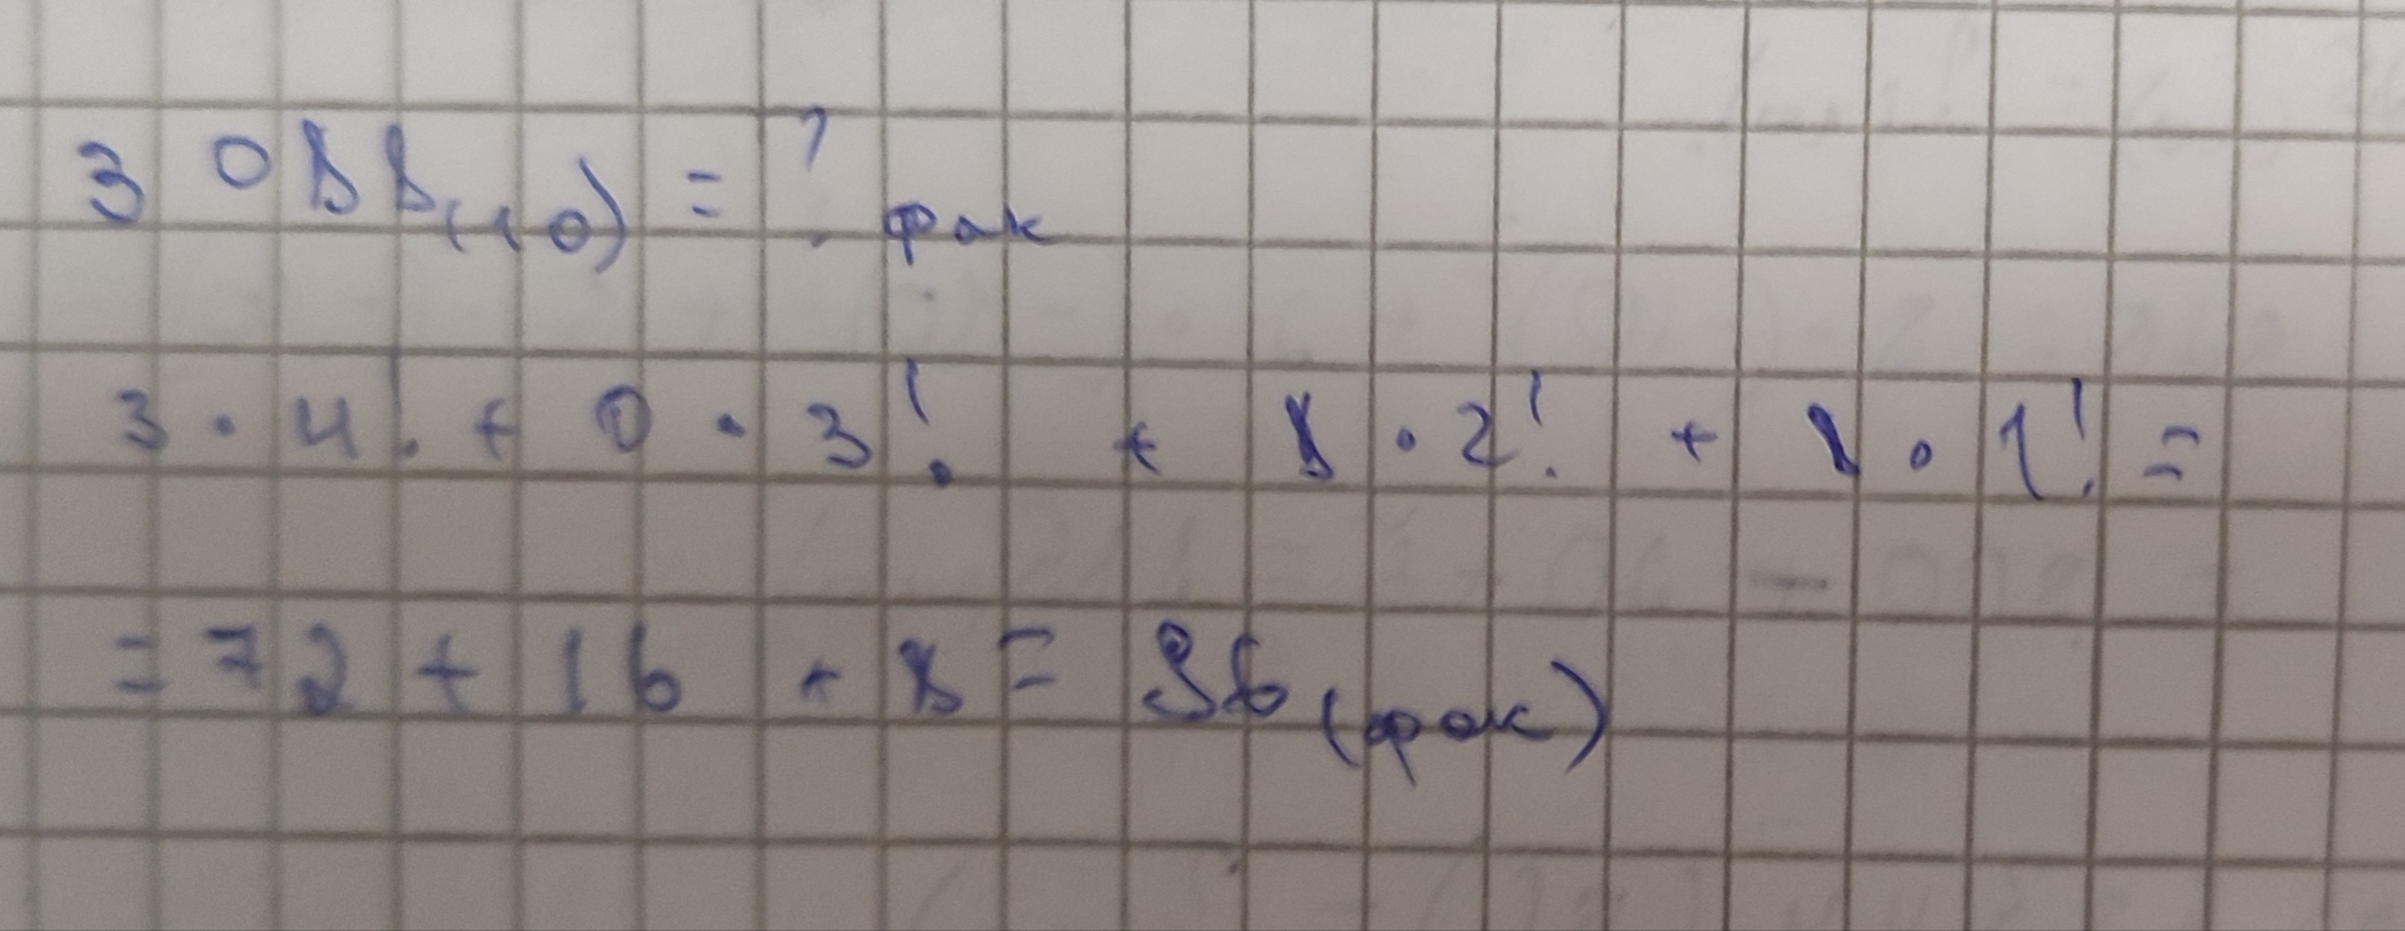 3088(10) = ? фак
3 · 4! + 0 · 3! + 8 · 2! + 8 · 1! =
= 72 + 16 + 8 = 96(фак)